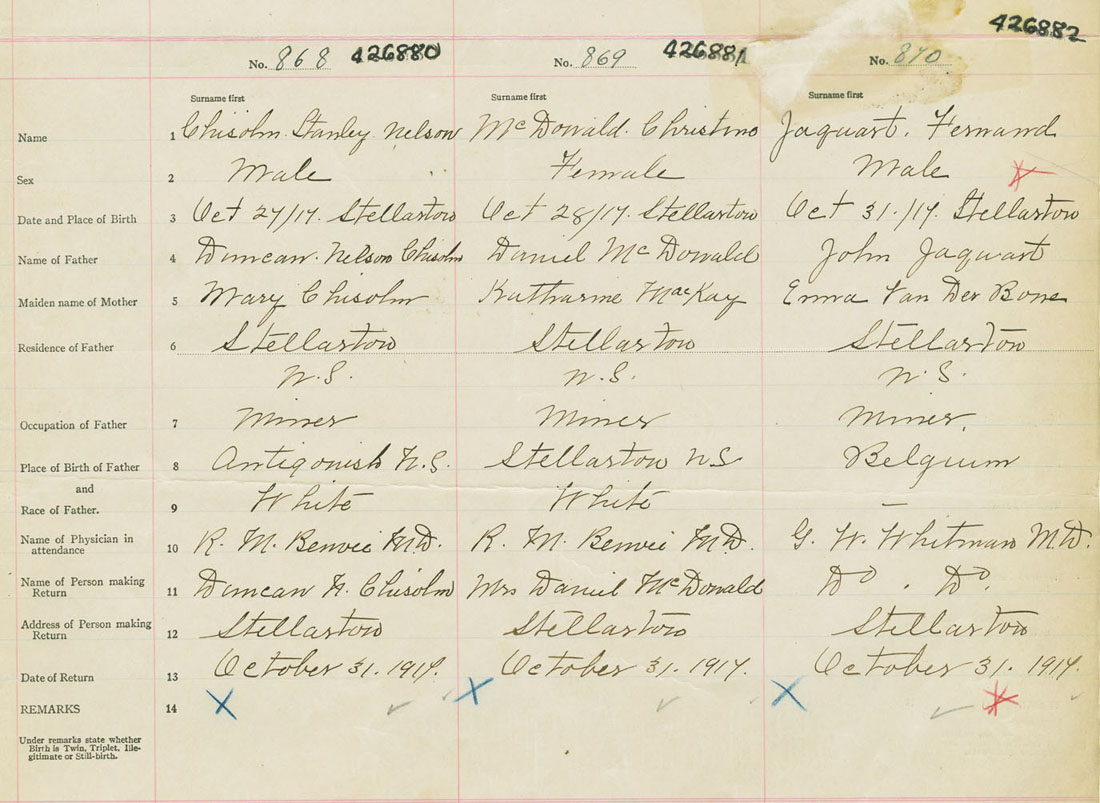 426882
No. 868 426880 No. 869 426881 No. 870
Surname first Surname first Surname first
Name 1 Chisolm. Stanley Nelson McDonald. Christina Jaquart. Fernand
Sex 2 Male Female Male
Date and Place of Birth 3 Oct 27/17. Stellarton Oct 28/17. Stellarton Oct 31./17. Stellarton
Name of Father 4 Duncan. Nelson Chisolm Daniel McDonald John Jaquart
Maiden name of Mother 5 Mary Chisolm Katharine MacKay Emma Van Der Bons
Residence of Father 6 Stellarton Stellarton Stellarton
N.S. N.S. N.S.
Occupation of Father 7 Miner Miner Miner.
Place of Birth of Father 8 Antigonish N.S. Stellarton NS Belgium
and
Race of Father. 9 White White —
Name of Physician in
attendance 10 R. M. Benvie M.D. R. M. Benvie M.D. G. W. Whitman M.D.
Name of Person making
Return 11 Duncan N. Chisolm Mrs Daniel McDonald Do . Do.
Address of Person making
Return 12 Stellarton Stellarton Stellarton
Date of Return 13 October 31. 1917. October 31. 1917. October 31. 1917.
REMARKS 14
Under remarks state whether
Birth is Twin, Triplet, Ille-
gitimate or Still-birth.